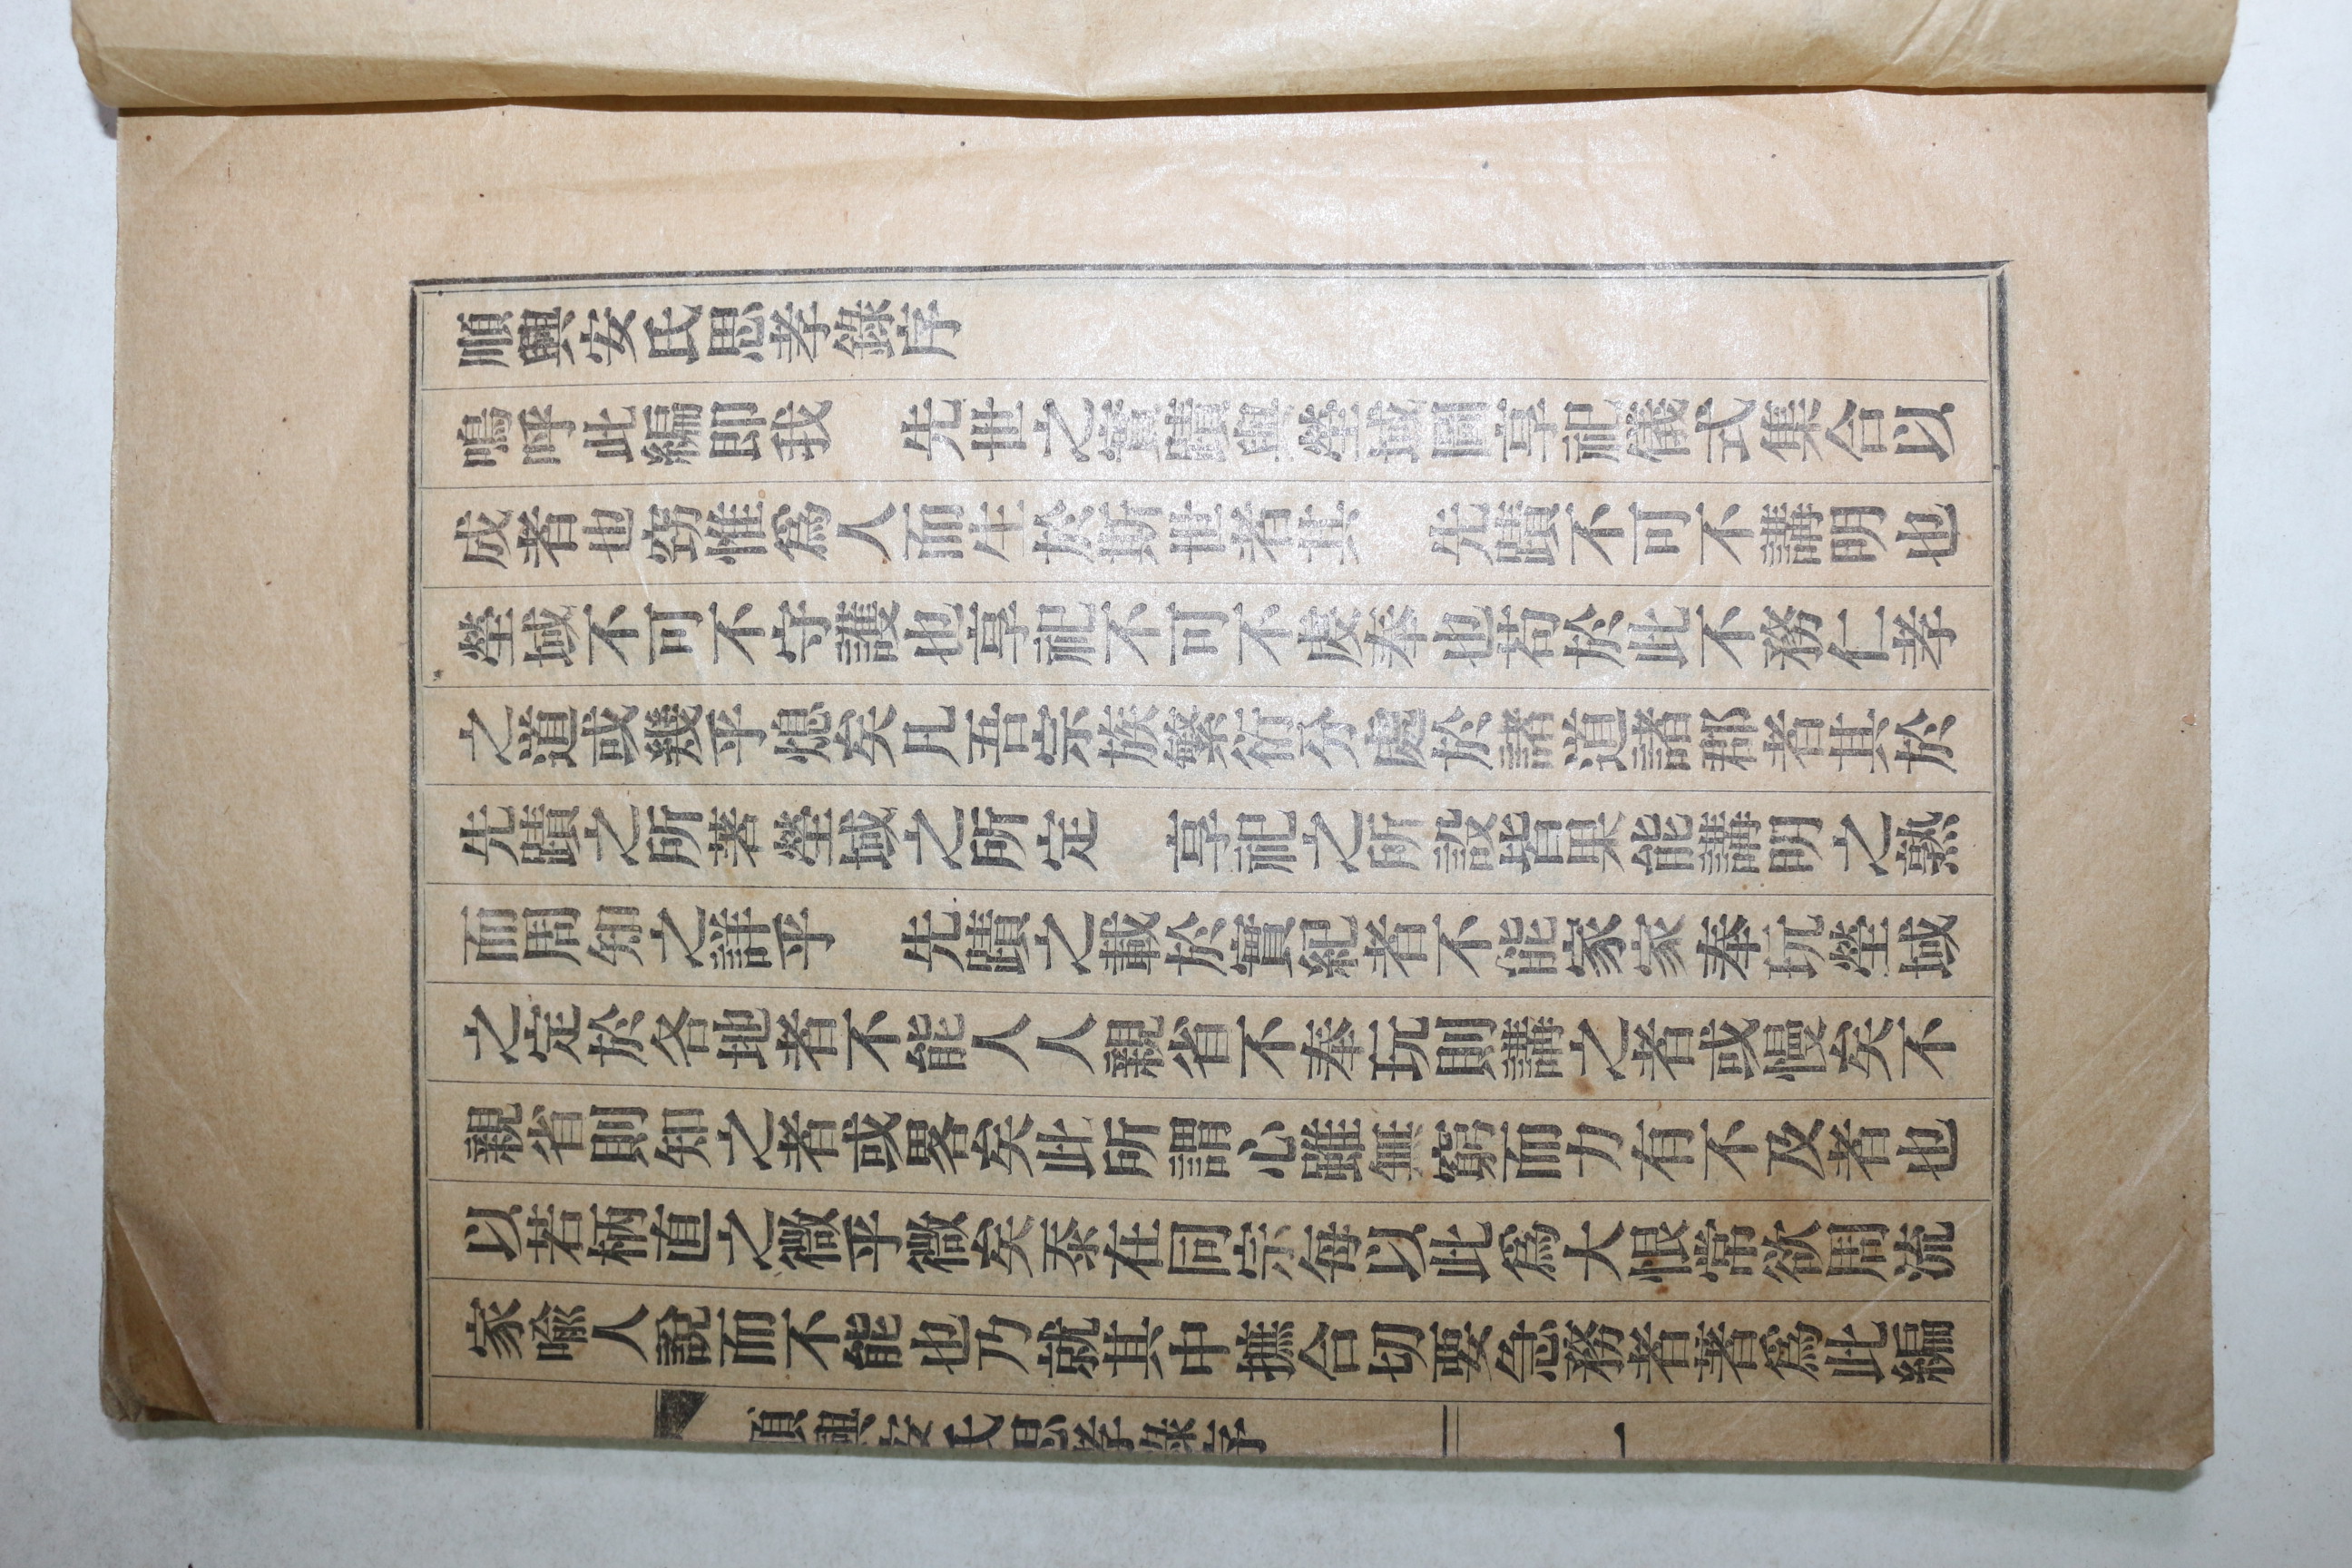 順興安氏思孝錄序
鳴呼此編即我　先世之實蹟與塋域圖享祀儀式集合以
成者也窃惟爲人而生於斯世者其　先蹟不可不講明也
塋域不可不守護也享祀不可不虔奉也苟於此不務仁孝
之道或幾乎熄矣凡吾宗族繁衍分處於諸道諸郡者其於
先蹟之所著塋域之所定　享祀之所設皆果能講明之熟
而周知之詳乎　先蹟之載於實紀者不能家家奉玩塋域
之定於各地者不能人人親省不奉玩則講之者或慢矣不
親省則知之者或畧矣此所謂心雖無窮而力有不及者也
以若柄直之微乎微矣忝在同宗每以此爲大恨常欲周流
家喩人說而不能也乃就其中摭合切要急務者著爲此編
順興安氏思孝錄序
一